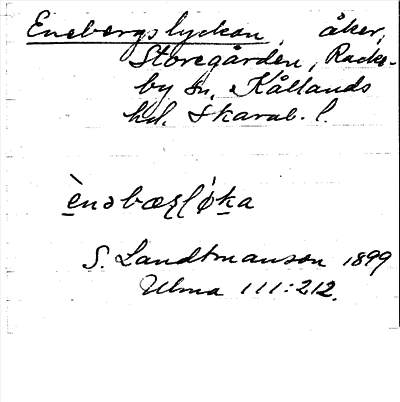 Enebergslyckan, åker,
Storegården, Racke-
by sn, Kållands
hd. Skarab. l.
ènəbæʀl̜ǿka
S. Landtmanson 1899
Ulma 111:212.